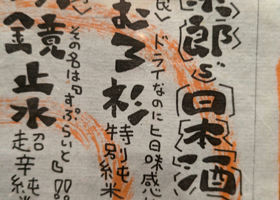 郎ど日本酒
ドライなのに旨味感
むろ杉
特別純米
その名は『すぷらいと』
鏡止水
超辛純